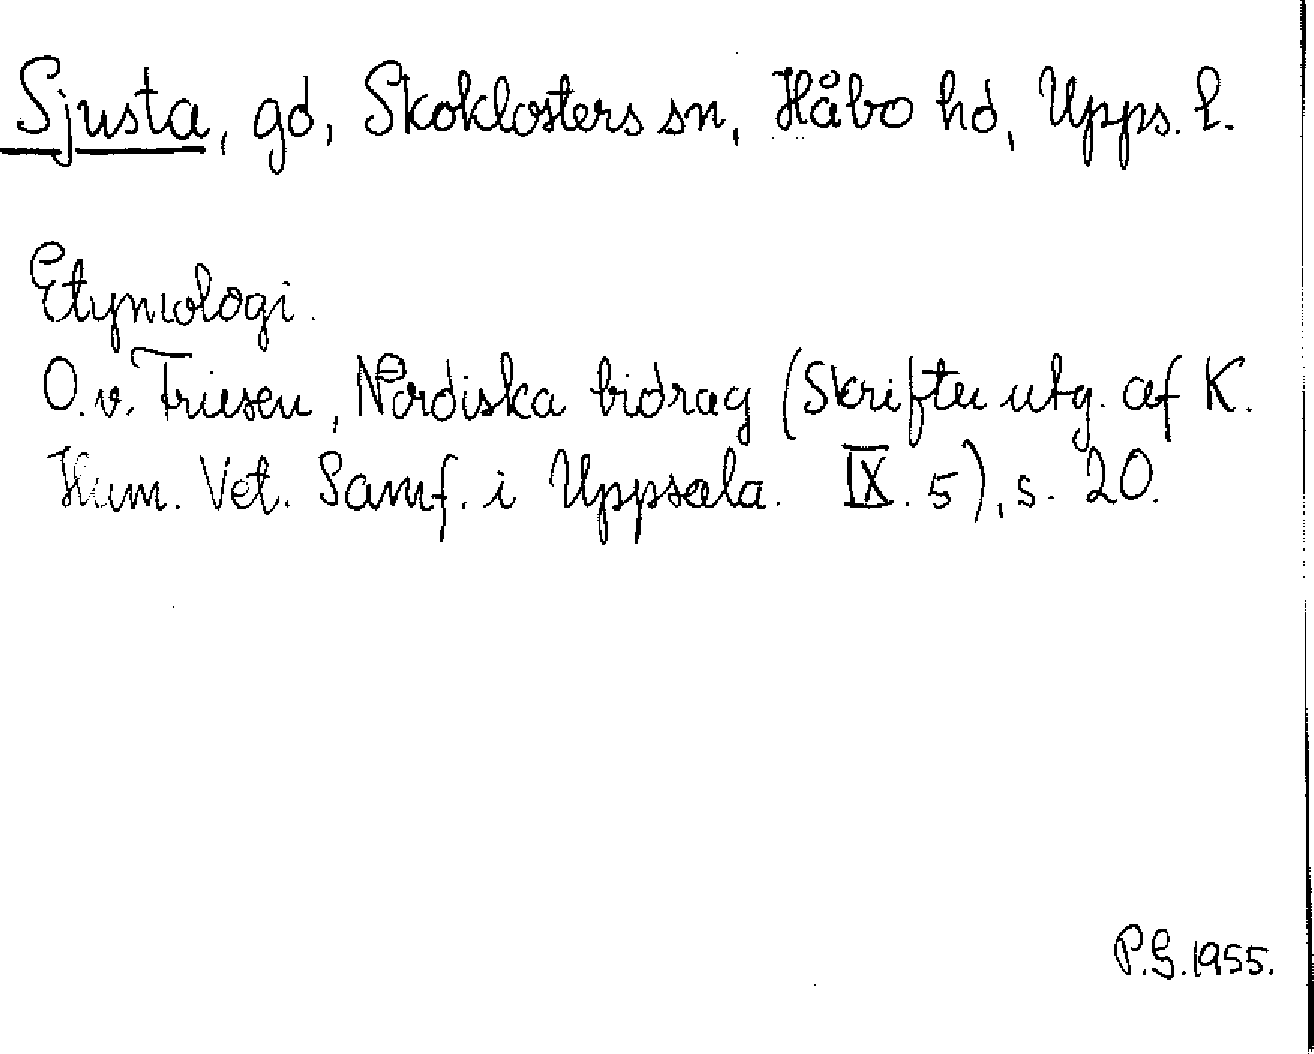 Sjusta, gd, Skoklosters sn, Håbo hd, Upps. l.
Etymologi.
O. v. Friesen, Nordiska bidrag (Skrifter utg. af K.
Hum. Vet. Samf. i Uppsala. IX. 5), s. 20.
P.G. 1955.